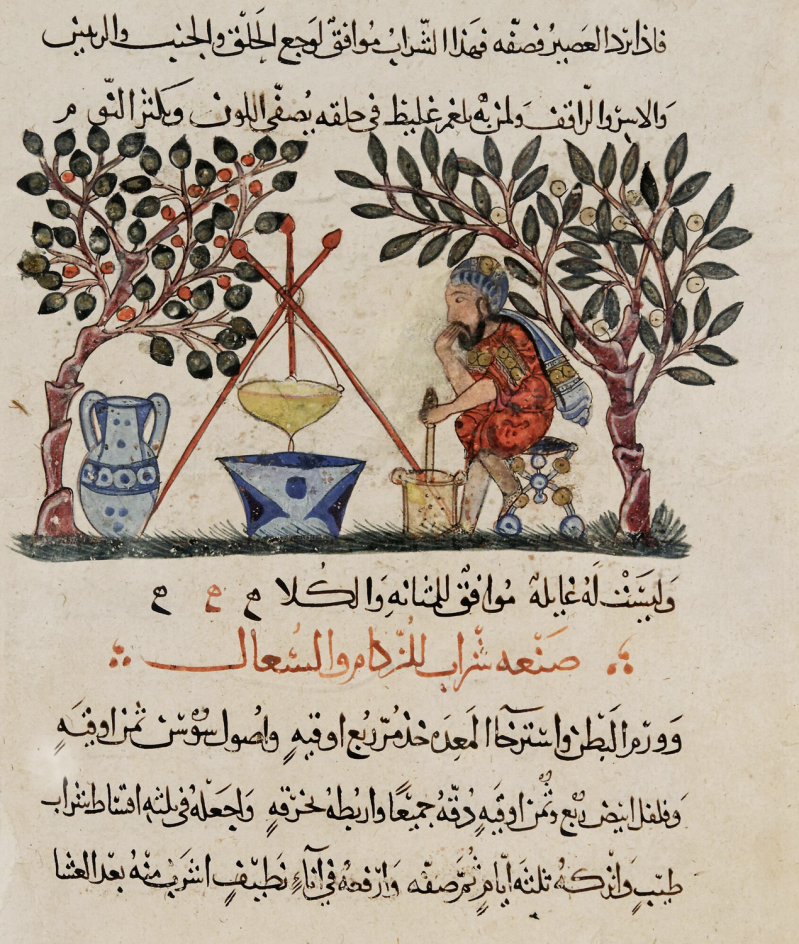 فاذا برد العصير فصفه فهذا الشراب موافق لوجع الحلق والجنب والرئتين
والاسر والراقف ولمن به بلغم غليظ في حلقه يصفي اللون ويكثر النوم
وليست له غايلة موافق للمثانه والكلا
صنعه شراب للزكام والسعال
وورم البطن واسترخا المعده خذ مر ربع اوقيه واصول سوسن ثمن اوقيه
وفلفل ابيض ربع وثمن اوقيه دقه جميعا واربطه بخرقه واجعله في ثلثه اقساط شراب
طيب واتركه ثلثه ايام ثم صفه وارفعه في اناء نظيف اشرب منه بعد العشا